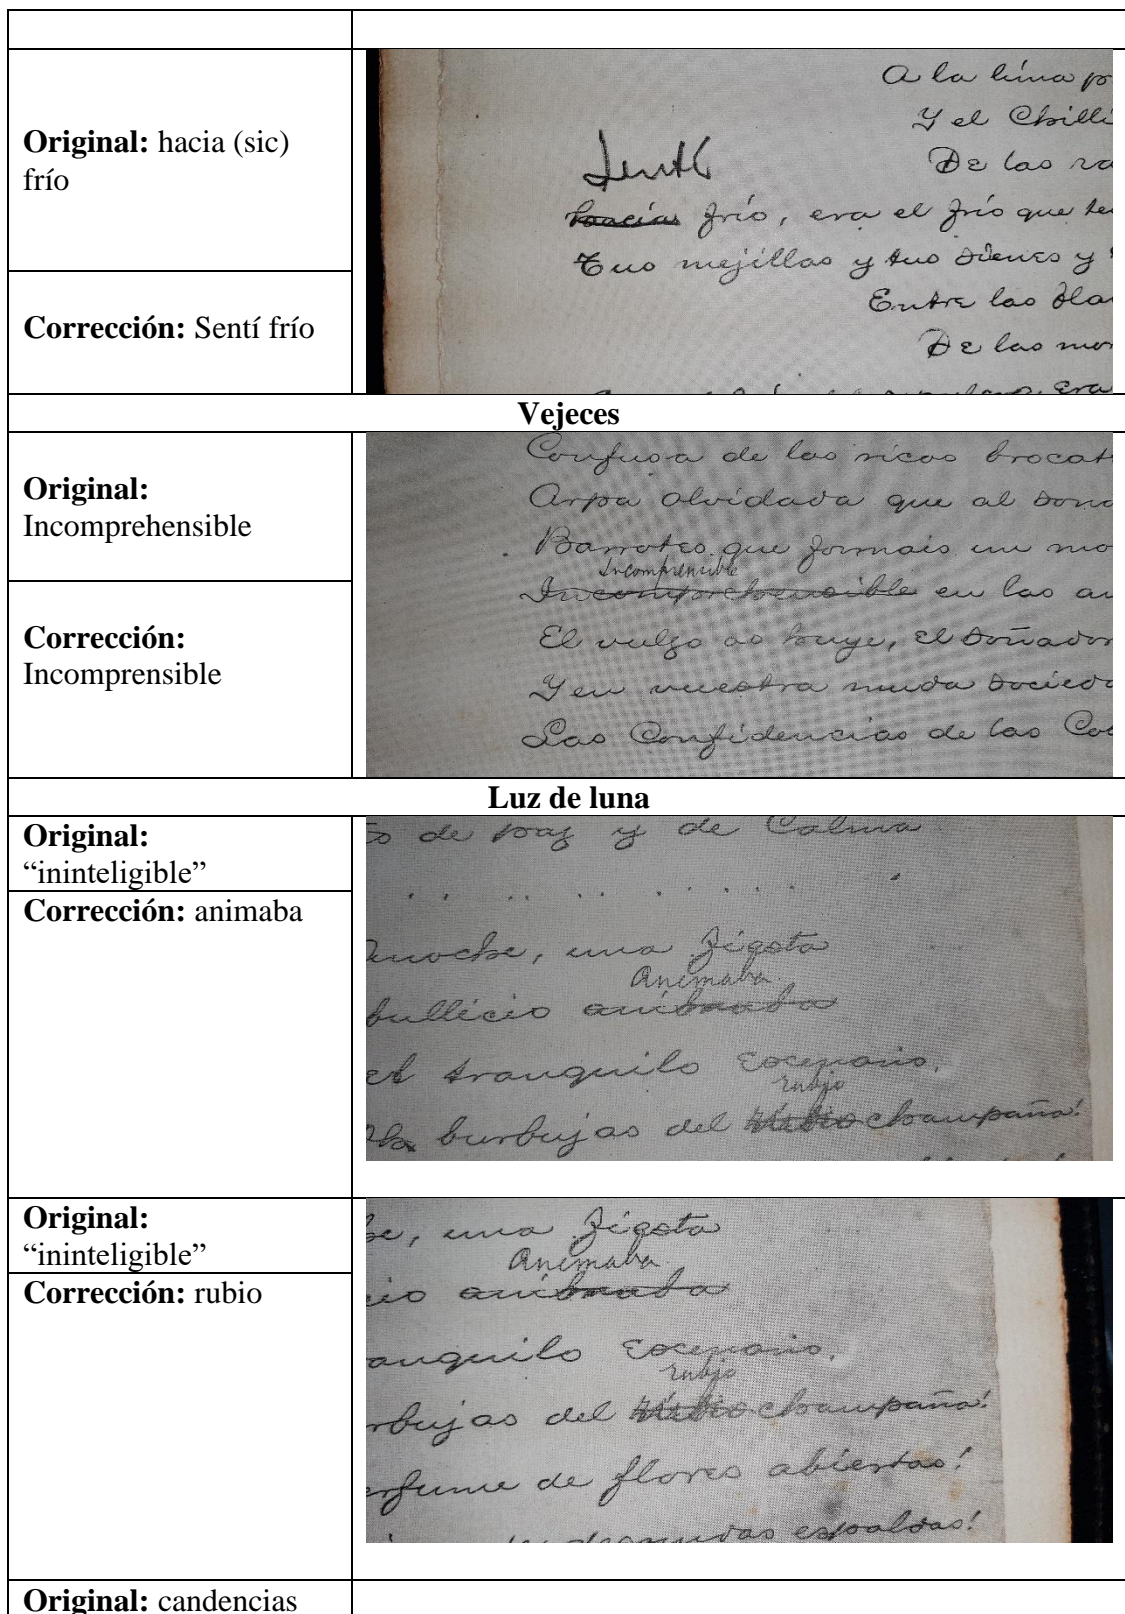 Original: hacia (sic)
frío
Corrección: Sentí frío
A la luna p
Y el Chilli
De las ra
Sentí
hacia frío, era el frío que te
Tus mejillas y tus sienes y
Entre las bla
De las mor
Vejeces
Original:
Incomprehensible
Corrección:
Incomprensible
Confusa de los ricos brocat
Arpa olvidada que al sona
Barrotes que formais un mo
Incomprensible
Incomprehensible en las an
El vulgo os huye, el soñador
Y en vuestra muda socieda
Las Confidencias de las Co
Luz de luna
Original:
“ininteligible”
Corrección: animaba
o de paz y de Calma
. . . . . . . . . .
noche, una fiesta
Animaba
bullicio
el tranquilo Escenario,
rubio
burbujas del champaña!
Original:
“ininteligible”
Corrección: rubio
e, una fiesta
Animaba
io
anquilo Escenario,
rubio
rbujas del champaña!
erfume de flores abiertas!
desnudas espaldas!
Original: candencias